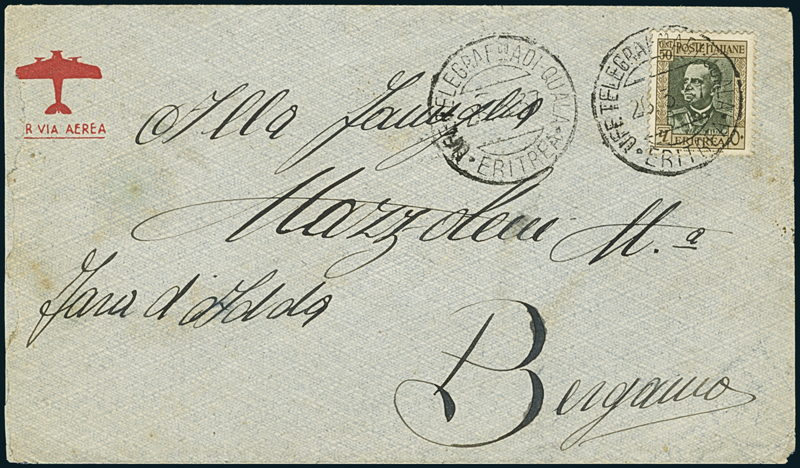 R VIA AEREA
UFF TELEGRAF CO ADI-QUALA
ERITREA
UFF TELEGRAF
ERITR
28
POSTE ITALIANE
CENT 50
ERITREA
Alla famiglia
Mazzoleni M.a
Fara d'Adda
Bergamo